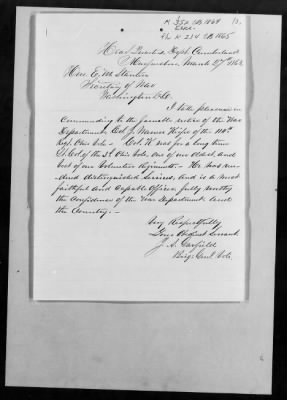 K 352 CB 1864
K 214 CB 1865
Head Quarters Dept. Cumberland
Murfreesboro March 27" 1863.
Hon. E. M. Stanton
Secretary of War
Washington D.C.
I take pleasure in
Commending to the favorable notice of the War
Department, Col. J. Warren Keifer of the 110th
Regt. Ohio Vols. Col. K. was for a long time
Lt. Col. of the 3d Ohio Vols. one of our oldest and
best of our Volunteer Regiments. He has ren-
dered distinguished Services, and is a most
faithful and Capable Officer, fully worthy
the Confidence of the War Department and
the Country.
Very Respectfully
Your Obedient Servant
J. A. Garfield
Brig: Genl Vols.